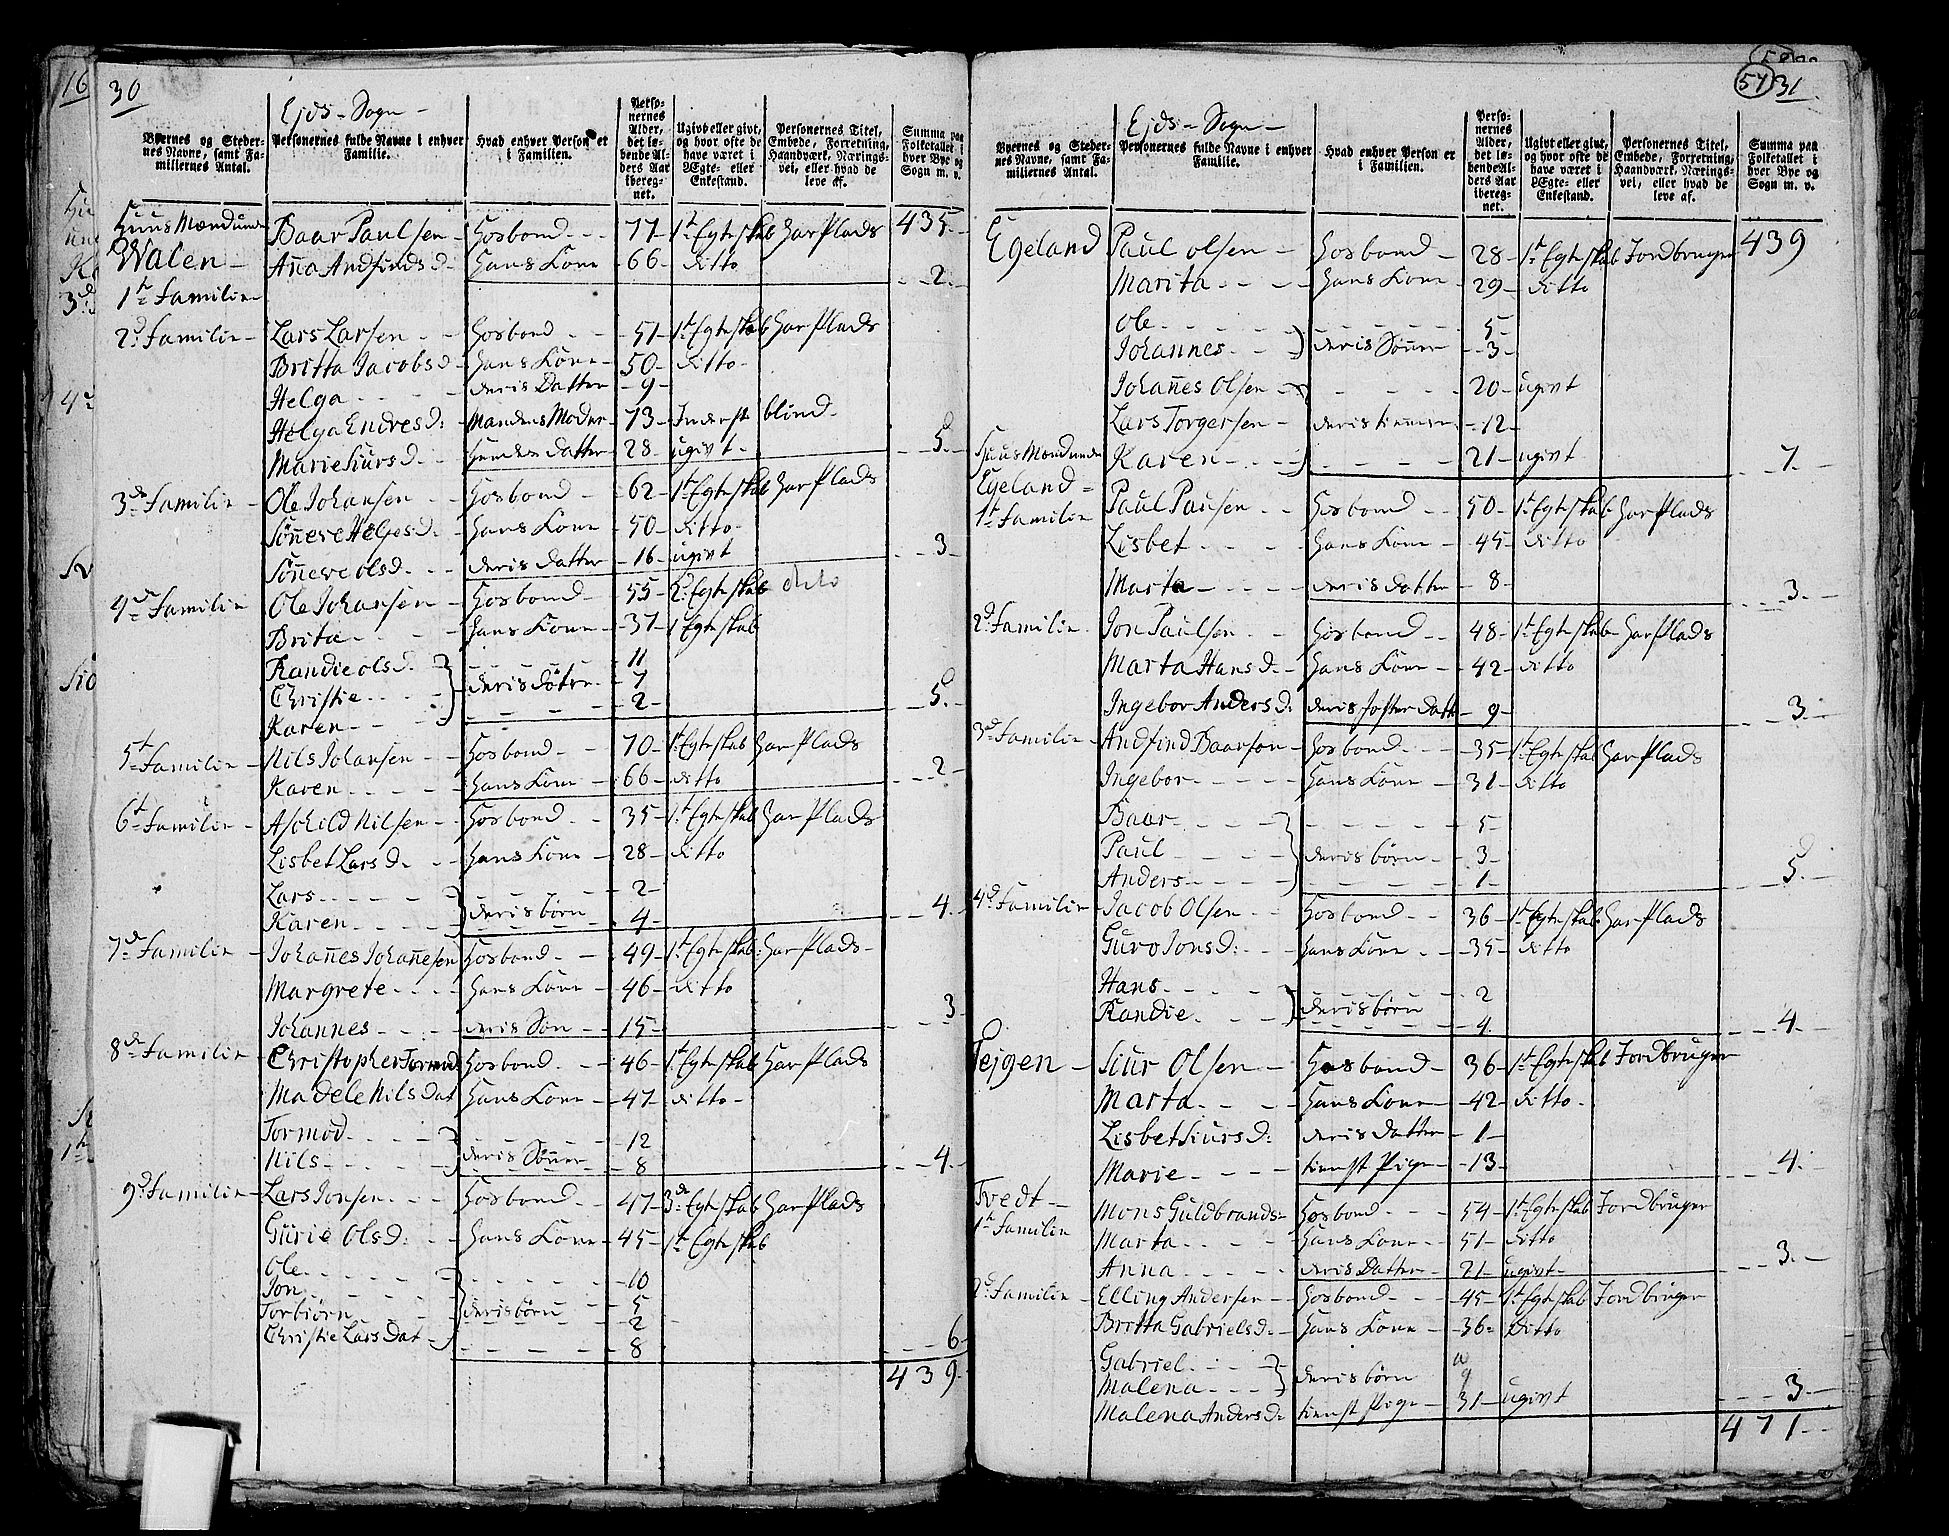 16 30
Ejds - Sogn -
Byernes og Stedernes Navne, samt Familliernes Antal. | Personernes fulde Navne i enhver Familie. | Hvad enhver Person er i Familien. | Personernes Alder, det løbende Alders Aar iberegnet. | Ugivt eller givt, og hvor ofte de have været i Ægte- eller Enkestand. | Personernes Titel, Embede, Forretning, Haandværk, Næringsvei, eller hvad de leve af. | Summa paa Folketallet i hver Bye og Sogn m. v.
Huus Mændunde Baar Paulsen - Hosbond - - 77 - 1t Egteskab har Plads 435 -
Walen - Anna Andfinds d - Hans Kone - 66 - ditto - - 2 -
1te Familie -
2d Familie - Lars Larsen - - Hosbond - - 51 - 1t Egteskab har Plads
Britta Jacobs d - Hans Kone - 50 - ditto -
Helga - - - - deris Datter - 9 -
Helga Endres d: Mandens Moder - 73 - Inderst blind -
Marie Siurs d - - Datter - 28 - ugivt - - - 5 -
3de Familie - Ole Johansen - - Hosbond - - 62 - 1t Egteskab har Plads
Sønneve Helges d. Hans Kone - 50 - ditto -
Sønneve ols d. - - deris datter - 16 - ugivt - - 3 -
4de Familie Ole Johansen - Hosbond - - 55 - 2d Egteskab dito
Brita - - - - Hans Kone - 37 - 1 Egteskab
Randie ols d. - - 11
Christie - - - deris døtre - - 7
Karen - - - - - - 2 - - - 5 -
5t Familie - Nils Johansen - - Hosbond - - 70 - 1t Egteskab har Plads
Karen - - - - Hans Kone - 66 - ditto - - 2 -
6t Familie - Aschild Nilsen - - Hosbond - - 35 - 1t Egteskab har Plads
Lisbet Lars d - - Hans Kone - 28 - ditto
Lars - - - - - - 2 -
Karen - - - - deris børn - 4 - - - 4 -
7de Familie - Johannes Johannesen Hosbond - - 49 - 1t Egteskab har Plads -
Margrete - - - Hans Kone - 46 - ditto
Johannes - - - deris Søn - 15 - - - 3
8de Familie - Christopher Tormod Hosbond - - 46 - 1t Egteskab har Plads
Madele Nils Dat Hans Kone - 47 - ditto -
Tormod - - - - - 12
Nils - - - - deris Sønner - 8 - - 4 -
9d Familie - Lars Jonsen - - Hosbond - - 47 - 3de Egteskab har Plads
Gurie Ols d: - - Hans Kone - 45 - 1t Egteskab
Ole - - - - - - 10
Jon - - - - - 5
Torbiørn - - deris børn - - 2
Christie Lars Dat - - - 8 - - - 6 -
439 -
57 31
Ejds - Sogn -
Byernes og Stedernes Navne, samt Familliernes Antal. | Personernes fulde Navne i enhver Familie. | Hvad enhver Person er i Familien. | Personernes Alder, det løbende Alders Aar iberegnet. | Ugivt eller givt, og hvor ofte de have været i Ægte- eller Enkestand. | Personernes Titel, Embede, Forretning, Haandværk, Næringsvei, eller hvad de leve af. | Summa paa Folketallet i hver Bye og Sogn m. v.
Egeland Paul olsen - Hosbond - 28 - 1t Egteskab Jordbruger 439
Marita - - - - Hans Kone - 29 - ditto
Ole - - - - - 5 -
Johannes - - - deris Sønner - 3 -
Johannes Olsen - - - - 20 - ugivt
Lars Torgersen - deris - 12 -
Huus Mændunde Karen - - - - - - 21 - ugivt - - 7 -
Egeland - Paul Paulsen - - Hosbond - - 50 - 1t Egteskab har Plads
1te Familie Lisbet - - - - Hans Kone - 45 - ditto
Marta - - - - deris datter - 8 - - - 3 -
2d Familie - Jon Paulsen - - Hosbond - - 48 - 1t Egteskab - har Plads
Marta Hans d - - Hans Kone - 42 - ditto
Ingebor Anders d. deris foster Datt - 9 - - - 3 -
3d Familie - Andfind Baarson - Hosbond - - 35 - 1t Egteskab har Plads
Ingebor - - - - Hans Kone - 31 - ditto
Baar - - - - - 5 -
Paul - - - - deris børn - 3 -
Anders - - - - - 1 - - - 5 -
4d Familie - Jacob Olsen - - Hosbond - - 36 - 1t Egteskab har Plads
Guro Jons d: - - Hans Kone - 35 - ditto
Hans - - - - - 2
Randie - - - deris børn - 4 - - 4 -
Tejgen - Siur Olsen - - Hosbond - 36 - 1t Egteskab Jordbruger
Marta - - - - Hans Kone - 42 - ditto -
Lisbet Siurs d: deris Datter - 1 -
Marie - - - - tienst Pige - 13 - - - 4 -
Tvedt - Mons Guldbrands - Hosbond - - 54 - 1t Egteskab Jordbruger
1te Familie Marta - - - - Hans Kone - 51 - ditto
Anna - - - - deris Datter - 21 - ugivt - - - 3 -
2d Familie - Elling Andersen - Hosbond - - 45 - 1t Egteskab Jordbruger
Britta Gabriels d - Hans Kone - 36 - ditto
Gabriel - - -
Malena - - - deris børn 9
Malena Anders d - tienst Pige - 31 - ugivt - - - 3 -
471 -